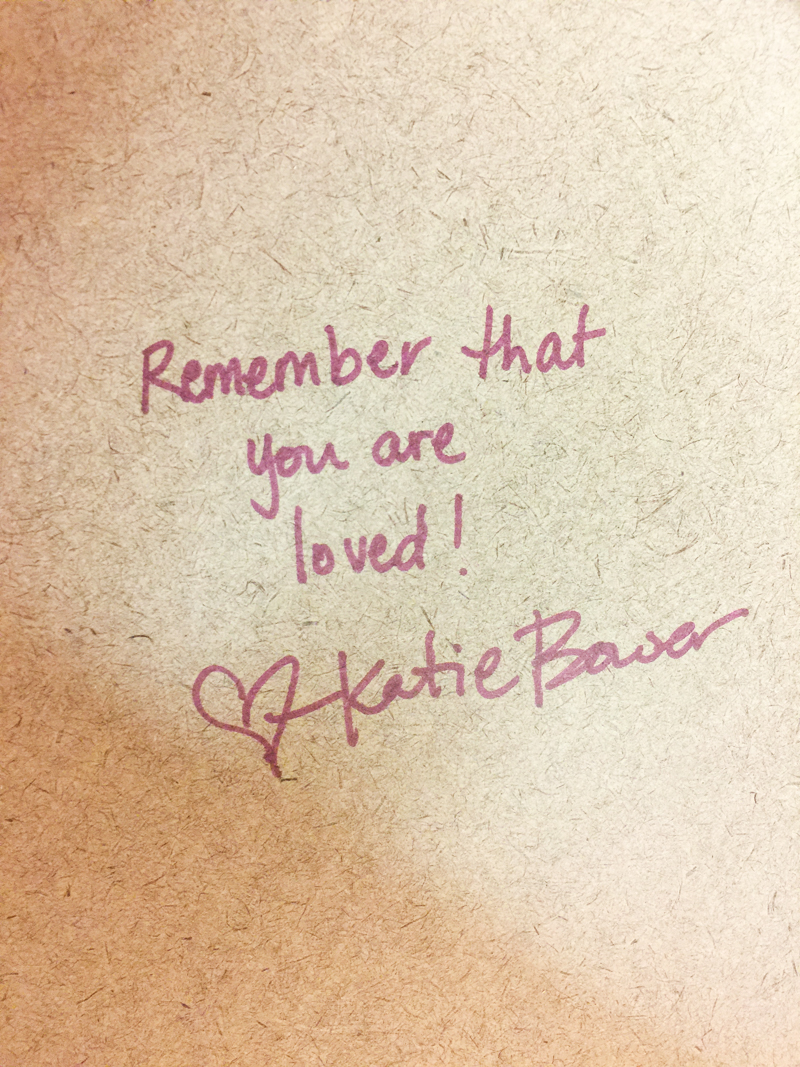 Remember that
you are
loved!
♡Katie Bower